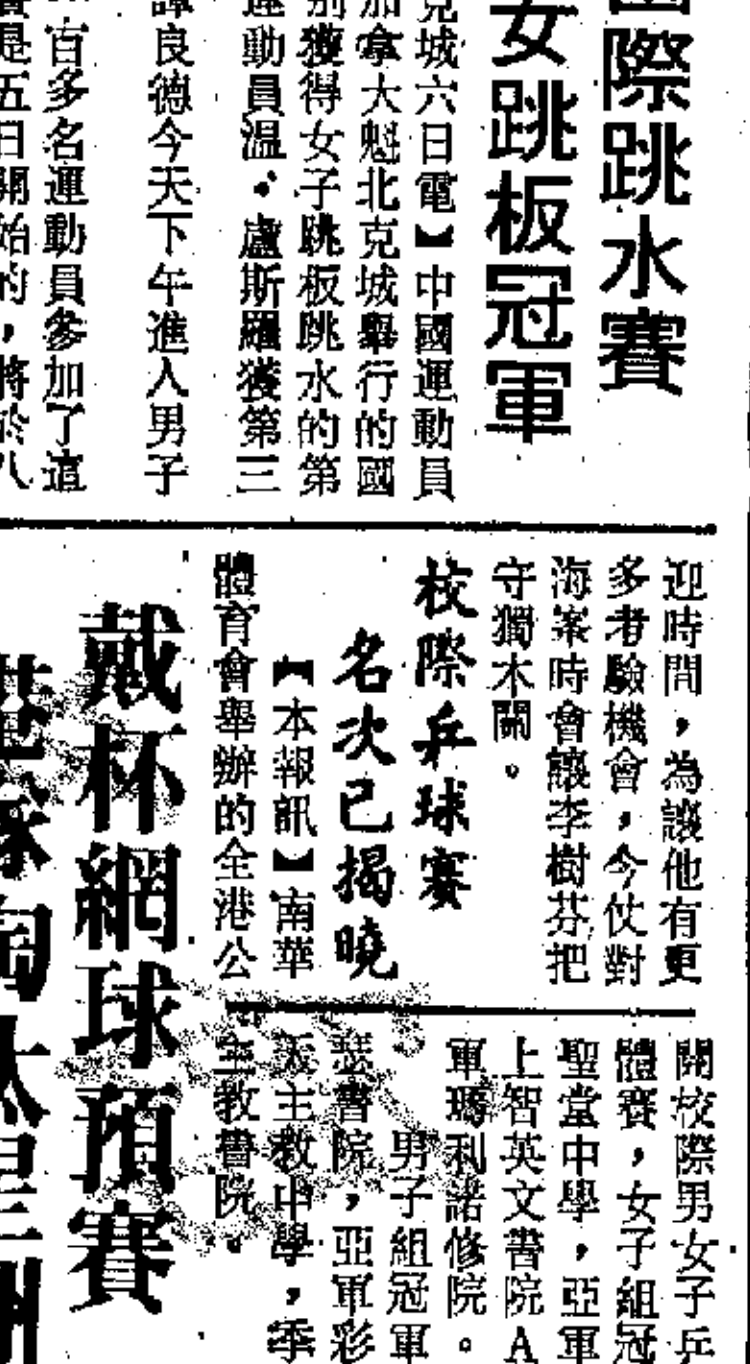 國際跳水賽
女跳板冠軍
克城六日電】中國運動員
加拿大魁北克城舉行的國
別獲得女子跳板跳水的第
運動員温·盧斯羅獲第三
譚良德今天下午進入男子
百多名運動員參加了這
是五日開始的，將於八
迎時間，為讓他有更
多考驗機會，今仗對
海峯時會讓李樹芬把
守獨木關。
校際乒球賽
名次已揭曉
【本報訊】南華
體育會舉辦的全港公
開校際男女子乒
體賽，女子組冠
聖堂中學，亞軍
上智英文書院A
軍瑪利諾修院。
男子組冠軍
瑟書院，亞軍彩
天主教中學，季
主教書院。
戴杯網球預賽
港隊淘汰星洲